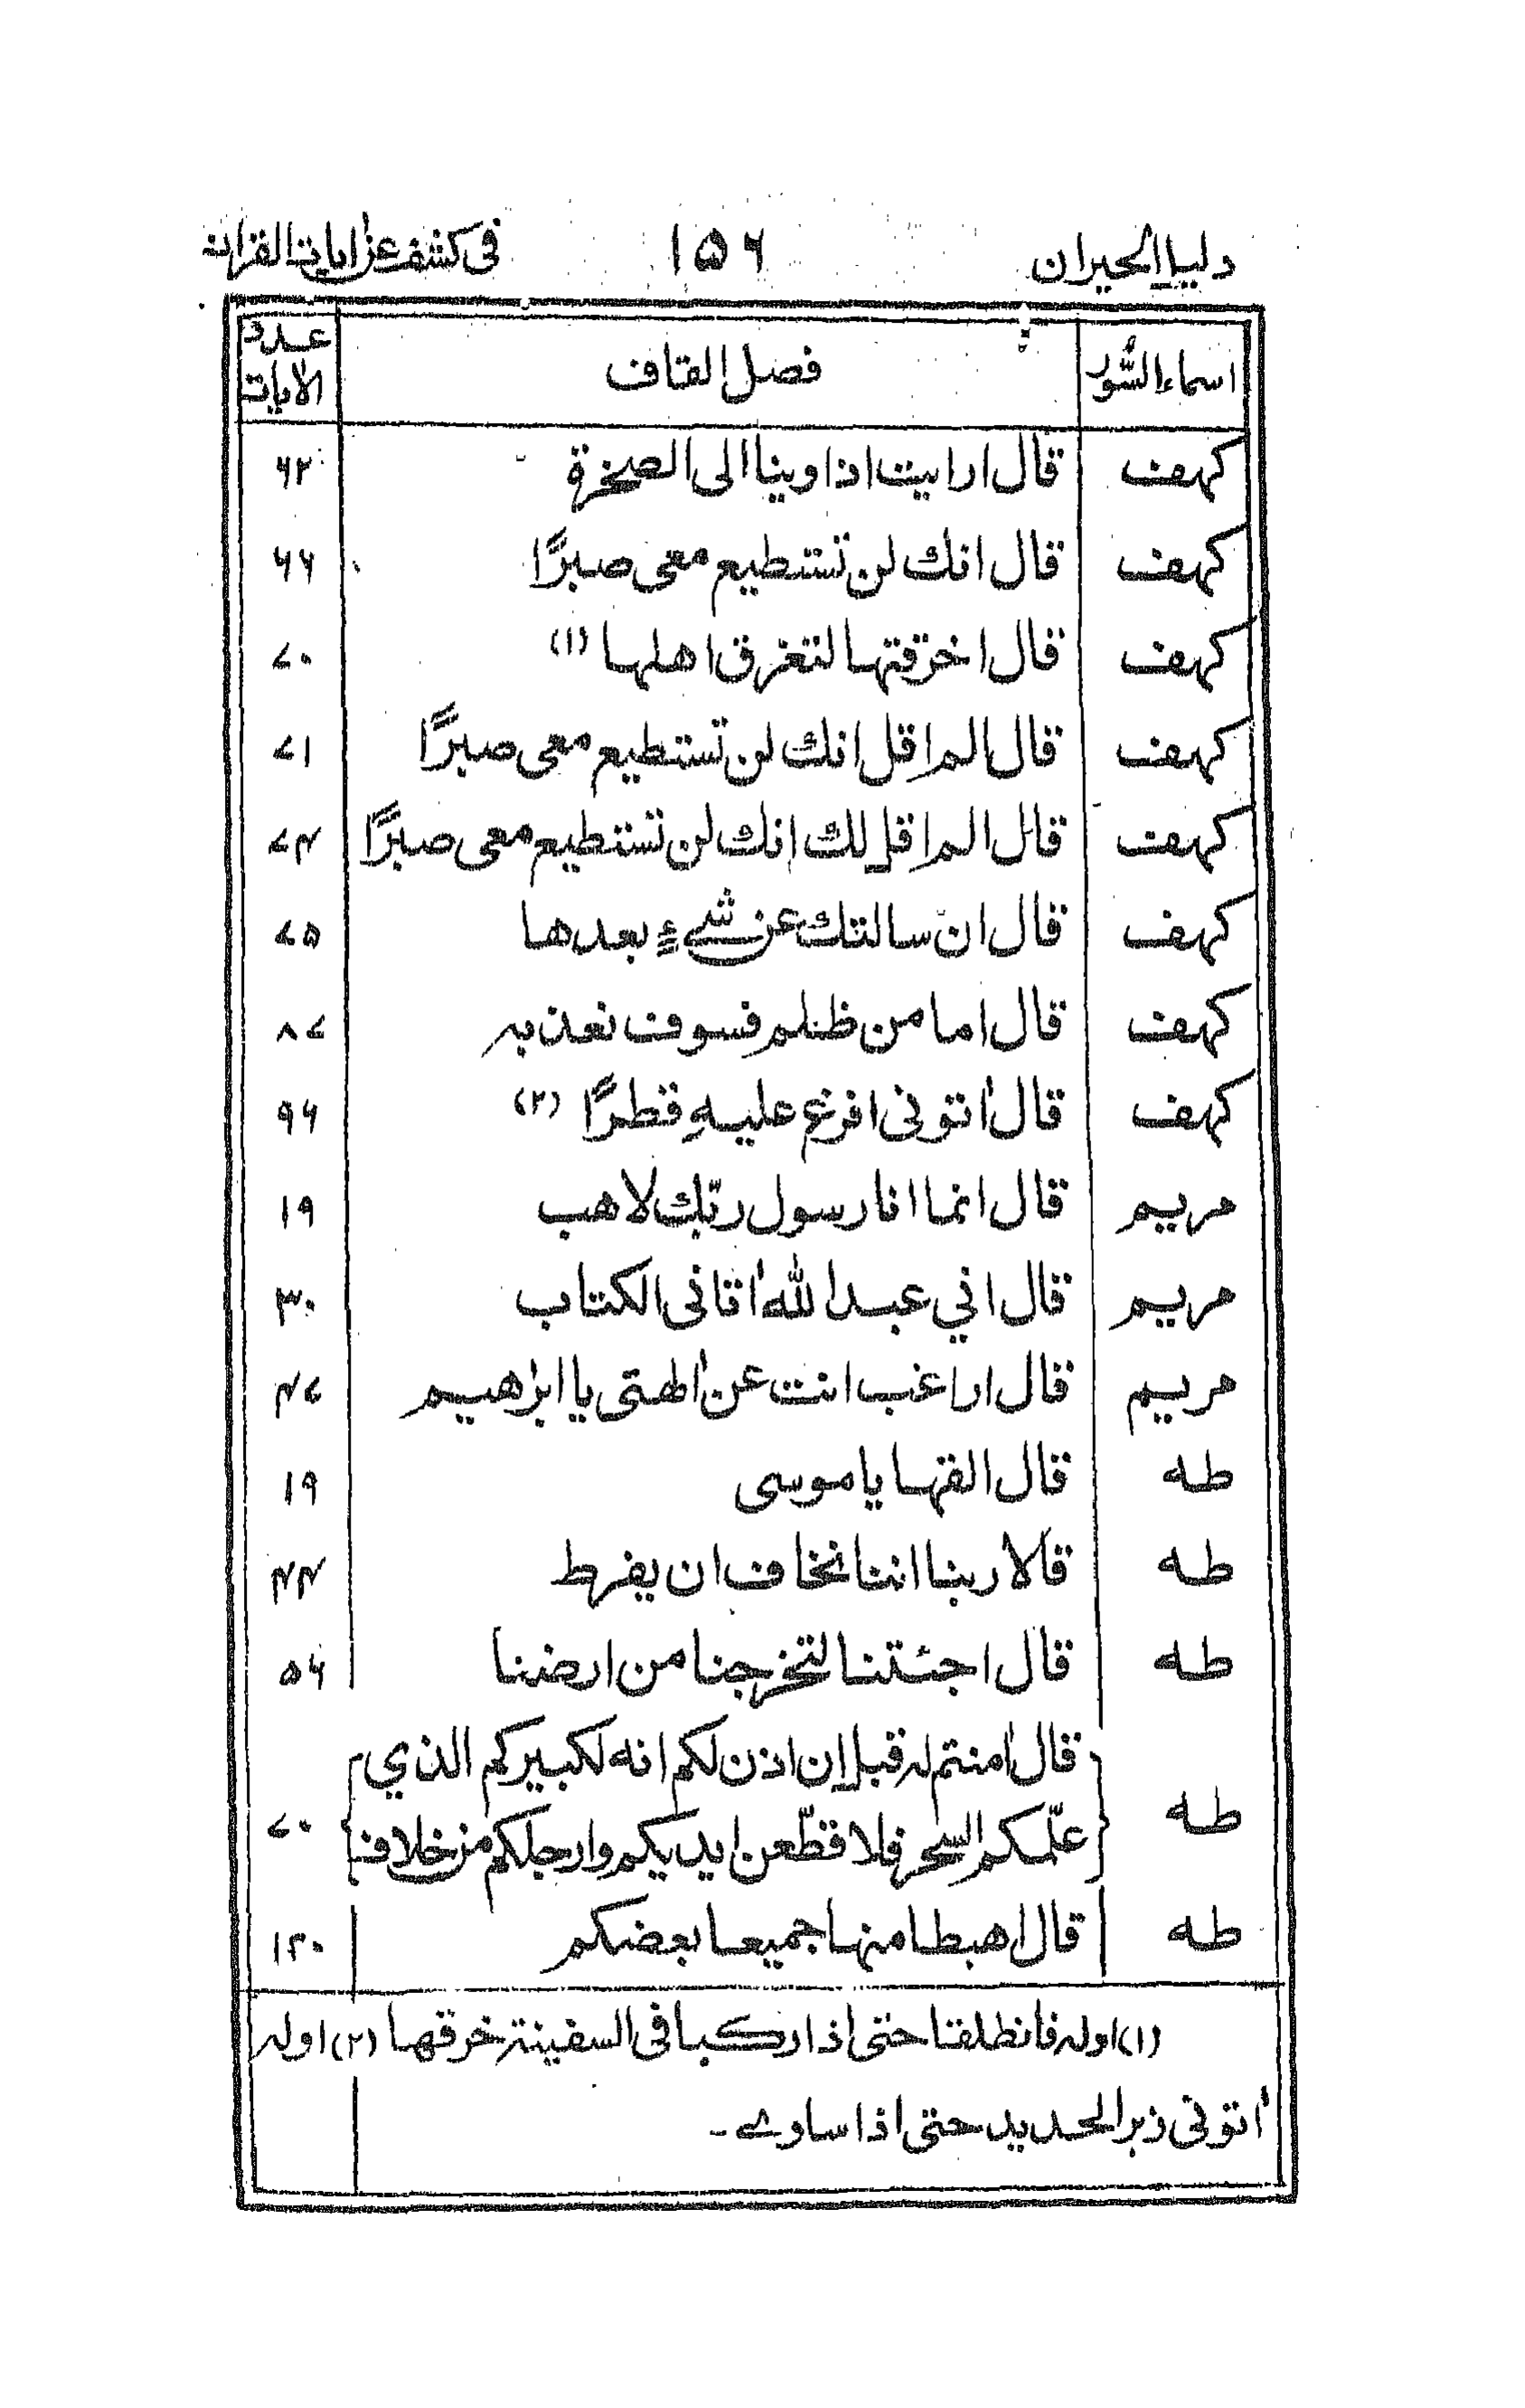 دليل الحيران ١٥٦ فى كشف عن ايات القران
اسماء السُّور فصل القاف عدد الايات
كهف قال ارايت اذ اوينا الى الصخرة ٦٢
كهف قال انك لن تستطيع معى صبرًا ٦٦
كهف قال اخرقتها لتغرق اهلها (١) ٧٠
كهف قال الم اقل انك لن تستطيع معى صبرًا ٧١
كهف قال الم اقل لك انك لن تستطيع معى صبرًا ٧٤
كهف قال ان سالتك عن شىءٍ بعدها ٧٥
كهف قال اما من ظلم فسوف نعذبه ٨٧
كهف قال اٰتونى افرغ عليهِ قطرًا (٢) ٩٦
مريم قال انما انا رسول ربّك لاهب ١٩
مريم قال اني عبد الله اٰتانى الكتاب ٣٠
مريم قال اراغب انت عن اٰلهتى يا ابراهيم ٤٧
طه قال القها يا موسى ١٩
طه قالا ربنا اننا نخاف ان يفرط ٤٤
طه قال اجئتنا لتخرجنا من ارضنا ٥٦
طه قال اٰمنتم له قبل ان اذن لكم انه لكبيركم الذي
علّمكم السحر فلاقطّعن ايديكم وارجلكم من خلاف ٧٠
طه قال اهبطا منها جميعا بعضكم ١٢٠
(١) اوله فانطلقا حتى اذا ركبا فى السفينة خرقها (٢) اوله
اٰتونى زبر الحديد حتى اذا ساوے ـ